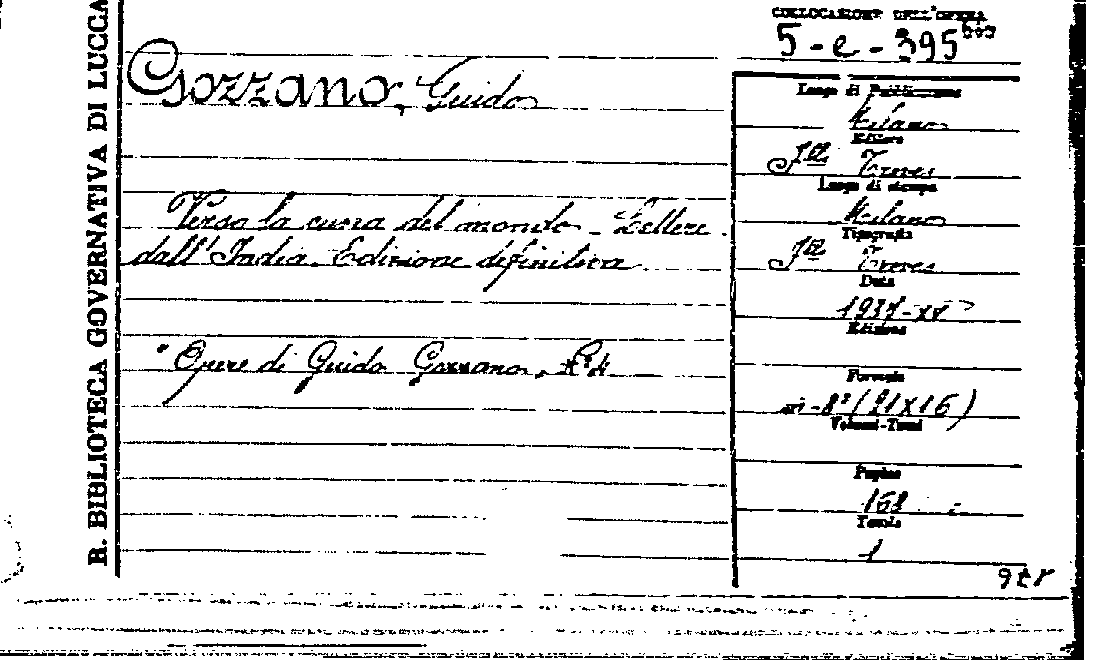 R. BIBLIOTECA GOVERNATIVA DI LUCCA
COLLOCAZIONE DELL'OPERA
5-e-395
Gozzano, Guido
Verso la cuna del mondo - Lettere
dall'India. Edizione definitiva
"Opere di Guido Gozzano,
Luogo di Pubblicazione
Milano
Editore
F.lli Treves
Luogo di stampa
Milano
Tipografia
F.lli Treves
Data
1937-XV
Edizione
Formato
in-8° (21X16)
Volumi-Tomi
Pagine
168
Tavole
1